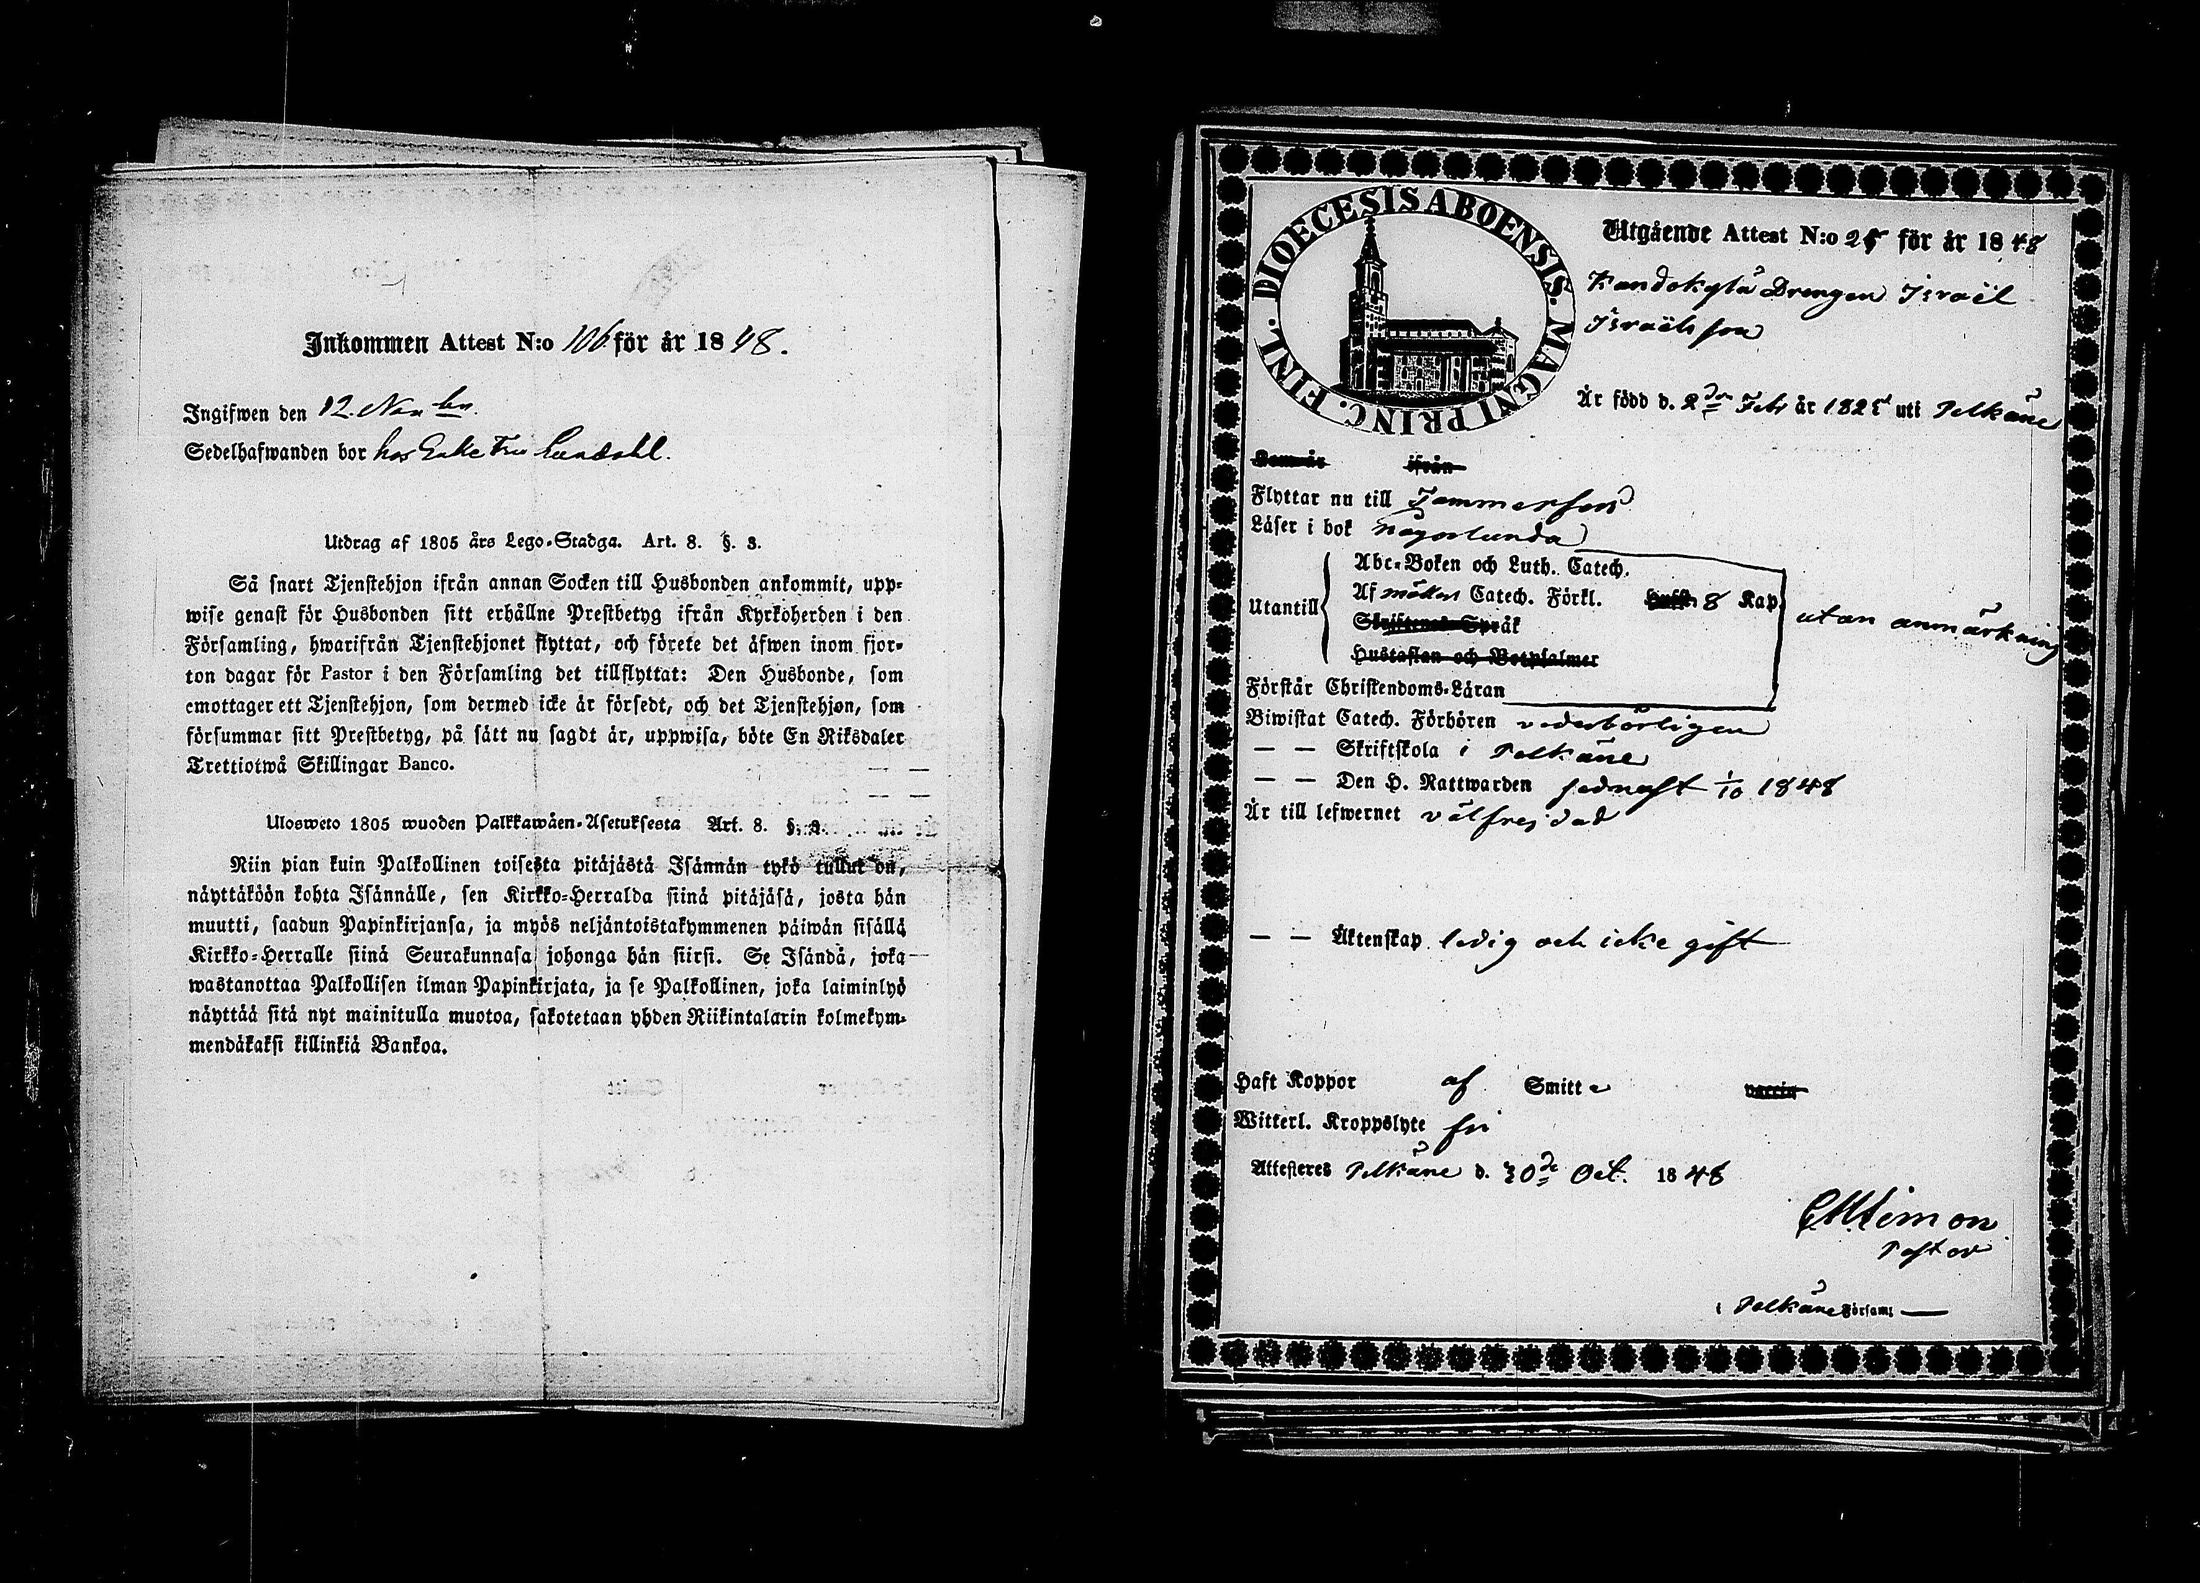 Inkommen Attest N:o 106 för år 1848.
Ingifwen den 12. Novbr
Sedelhafwanden bor hos Enke Fru Lundahl.
Utdrag af 1805 års Lego-Stadga. Art. 8. §. 3.
Så snart Tjenstehjon ifrån annan Socken till Husbonden ankommit, upp-
wise genast för Husbonden sitt erhållne Prestbetyg ifrån Kyrkoherden i den
Församling, hwarifrån Tjenstehjonet flyttat, och förete det äfwen inom fjor-
ton dagar för Pastor i den Församling det tillflyttat: Den Husbonde, som
emottager ett Tjenstehjon, som dermed icke är försedt, och det Tjenstehjon, som
försummar sitt Prestbetyg, på sätt nu sagdt är, uppwisa, böte En Riksdaler
Trettiotwå Skillingar Banco.
Ulosweto 1805 wuoden Palkkawäen-Asetuksesta Art. 8. §. 3.
Niin pian kuin Palkollinen toisesta pitäjästä Isännän tykö tullut on,
näyttäköön kohta Isännälle, sen Kirkko-Herralda siinä pitäjäsä, josta hän
muutti, saadun Papinkirjansa, ja myös neljäntoistakymmenen päiwän sisällä
Kirkko-Herralle siinä Seurakunnasa johonga hän siirsi. Se Isändä, joka
wastanottaa Palkollisen ilman Papinkirjata, ja se Palkollinen, joka laiminlyö
näyttää sitä nyt mainitulla muotoa, sakotetaan yhden Riikintalarin kolmekym-
mendäkaksi killinkiä Bankoa.
DIOECESIS ABOENSIS. MAGNI PRINC. FINL.
Utgående Attest N:o 25 för år 1848
Kandokylä Drengen Israël
Israëlsson
Är född d. 2dn Febr år 1825 uti Pelkäne
Kom år ifrån
Flyttar nu till Tammerfors
Läser i bok någorlunda
Abc-Boken och Luth. Catech.
Utantill Af möllers Catech. Förkl. Hufst. 8 Kap. utan anmärkning
Skriftenes Språk
Hustaflan och Botpsalmer
Förstår Christendoms-Läran
Biwistat Catech. Förhören vederbörligen
— — Skriftskola i Pelkäne
— — Den H. Nattwarden sednast 1/10 1848
Är till lefwernet välfrejdad
— — Äktenskap ledig och icke gift
Haft Koppor af Smitte naturliga
Witterl. Kroppslyte fri
Attesteres Pelkäne d. 30de Oct. 1848
CMSimon
Pastor
i Pelkäne Församl —